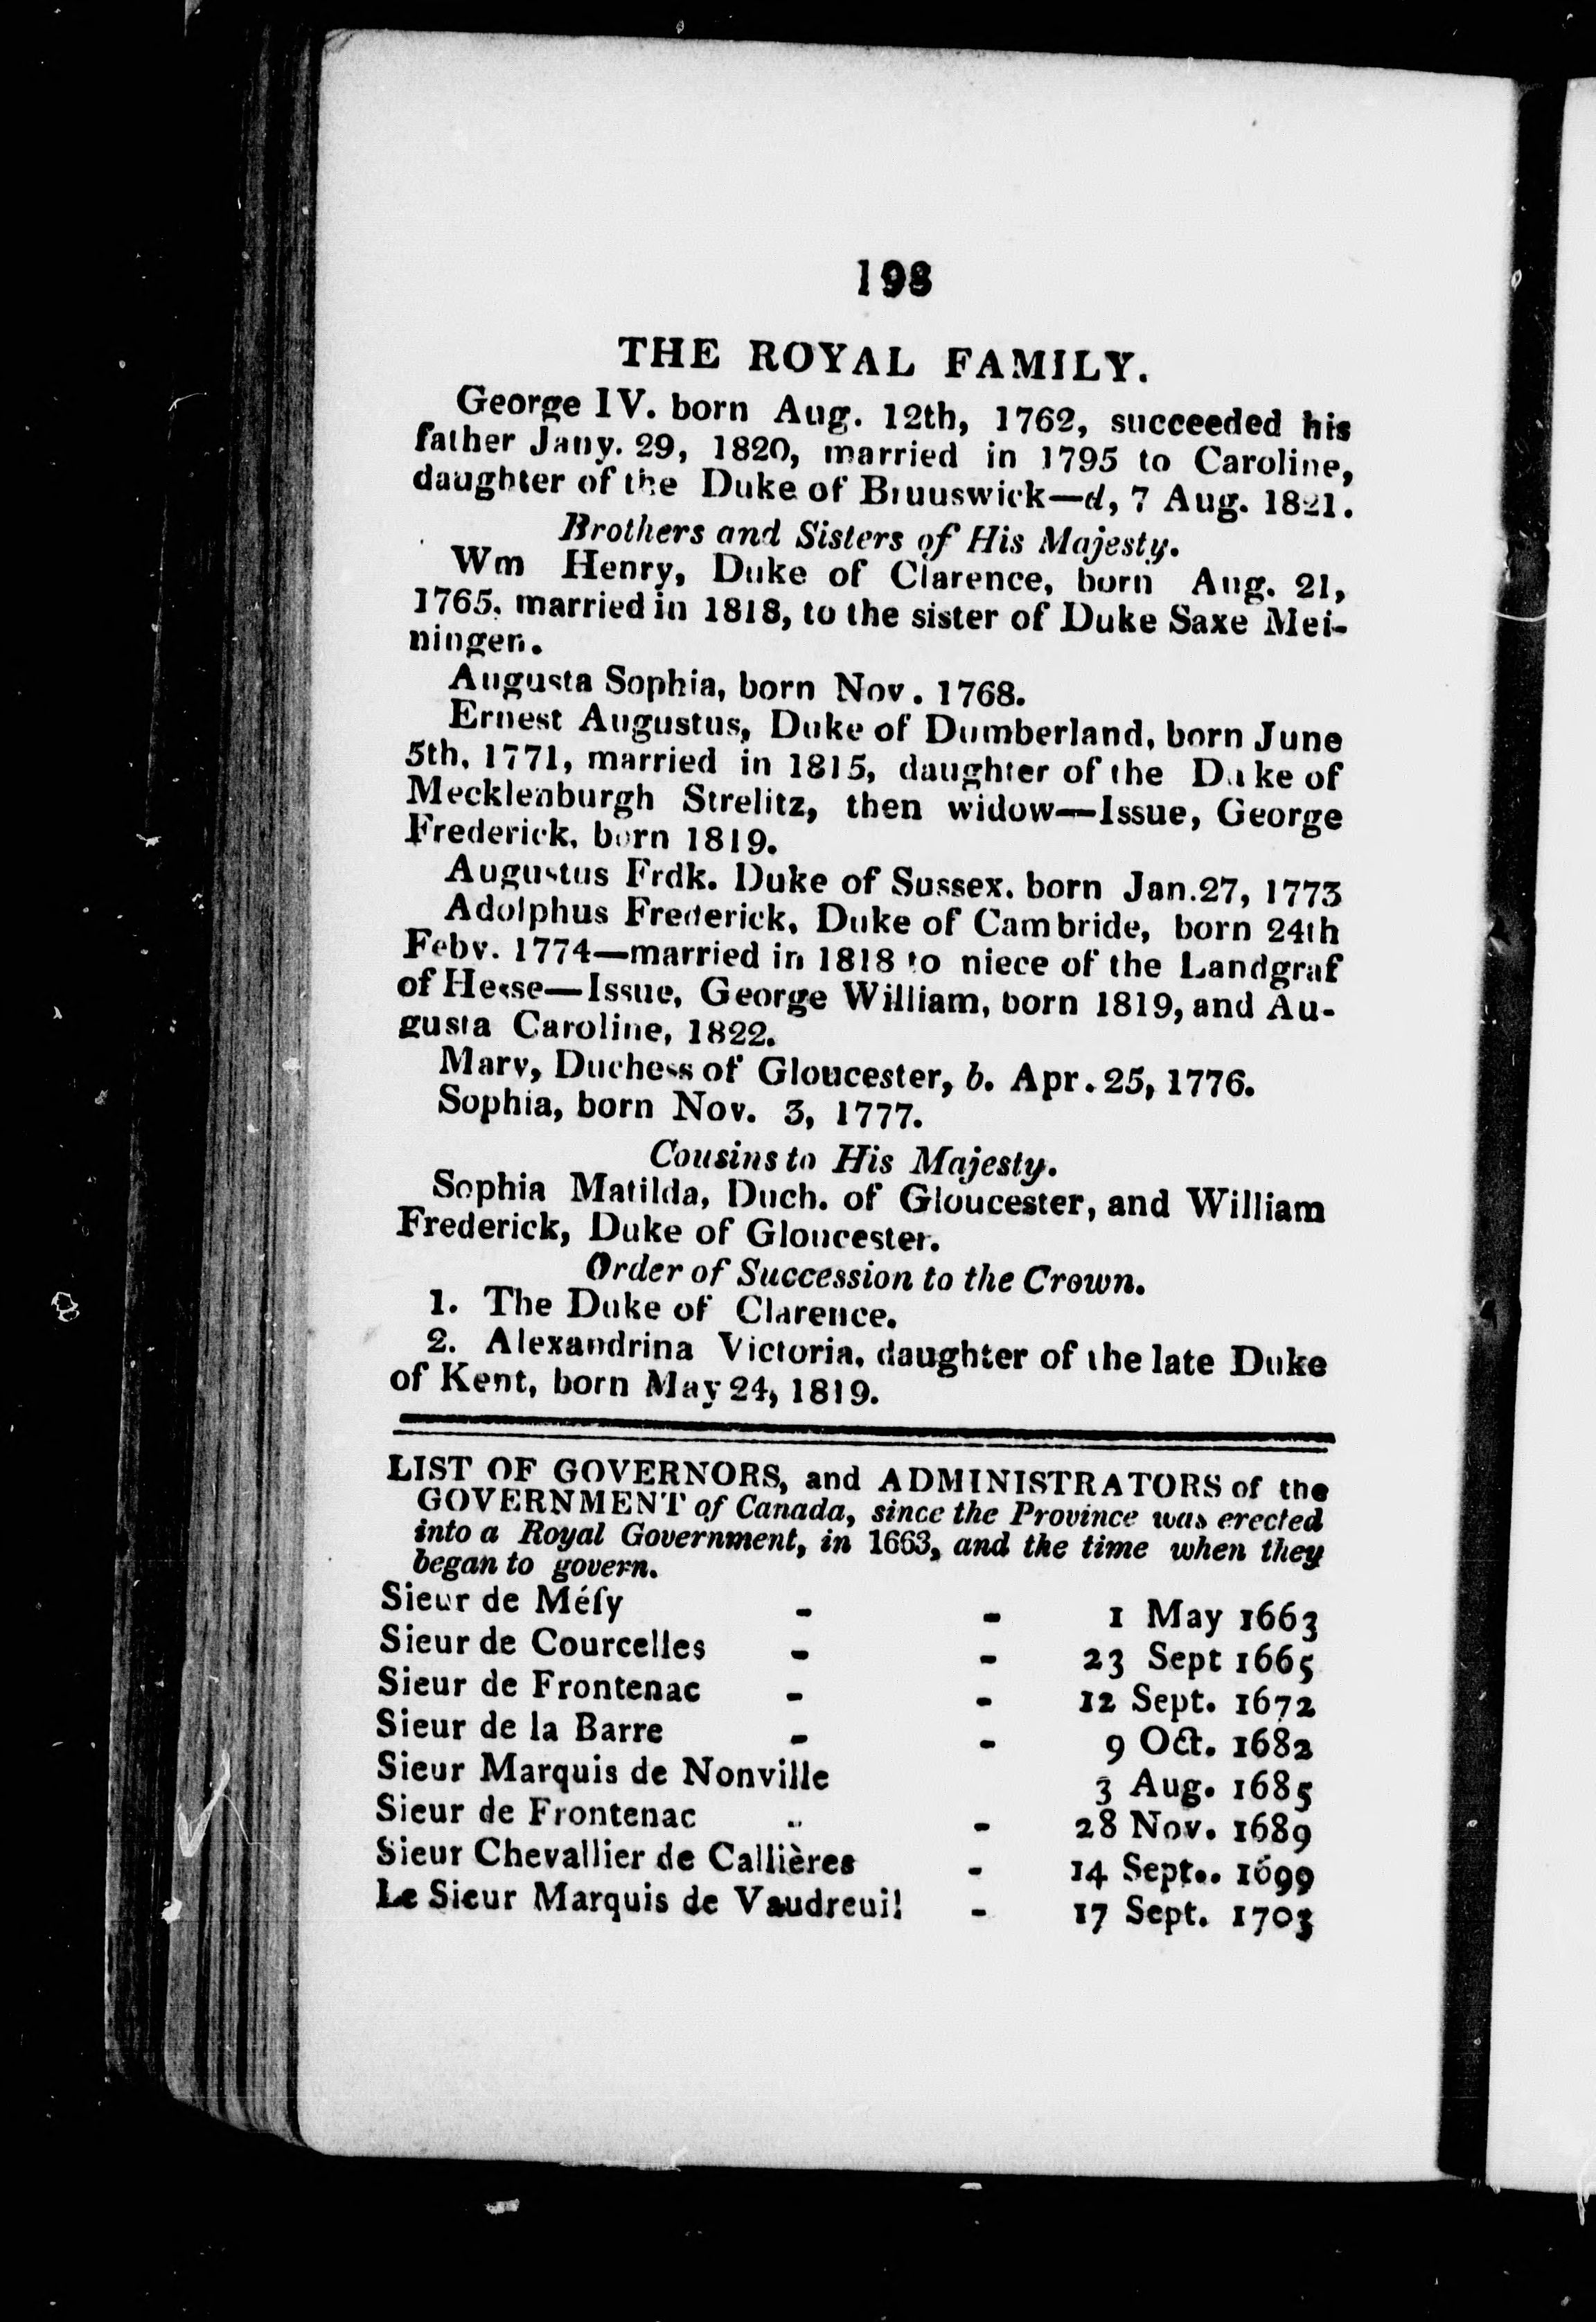 198
THE ROYAL FAMILY.
George IV. born Aug. 12th, 1762, succeeded his
father Jany. 29, 1820, married in 1795 to Caroline,
daughter of the Duke of Bruuswick—d, 7 Aug. 1821.
Brothers and Sisters of His Majesty.
Wm Henry, Duke of Clarence, born Aug. 21,
1765, married in 1818, to the sister of Duke Saxe Mei-
ningen.
Augusta Sophia, born Nov. 1768.
Ernest Augustus, Duke of Dumberland, born June
5th, 1771, married in 1815, daughter of the Duke of
Mecklenburgh Strelitz, then widow—Issue, George
Frederick, born 1819.
Augustus Frdk. Duke of Sussex. born Jan.27, 1773
Adolphus Frederick, Duke of Cambride, born 24th
Feby. 1774—married in 1818 to niece of the Landgraf
of Hesse—Issue, George William, born 1819, and Au-
gusta Caroline, 1822.
Mary, Duchess of Gloucester, b. Apr. 25, 1776.
Sophia, born Nov. 3, 1777.
Cousins to His Majesty.
Sophia Matilda, Duch. of Gloucester, and William
Frederick, Duke of Gloucester.
Order of Succession to the Crown.
1. The Duke of Clarence.
2. Alexandrina Victoria, daughter of the late Duke
of Kent, born May 24, 1819.
LIST OF GOVERNORS, and ADMINISTRATORS of the
GOVERNMENT of Canada, since the Province was erected
into a Royal Government, in 1663, and the time when they
began to govern.
Sieur de Méſy - - 1 May 1663
Sieur de Courcelles - - 23 Sept 1665
Sieur de Frontenac - - 12 Sept. 1672
Sieur de la Barre - - 9 Oct. 1682
Sieur Marquis de Nonville 3 Aug. 1685
Sieur de Frontenac - - 28 Nov. 1689
Sieur Chevallier de Callières - 14 Sept.. 1699
Le Sieur Marquis de Vaudreuil - 17 Sept. 1703